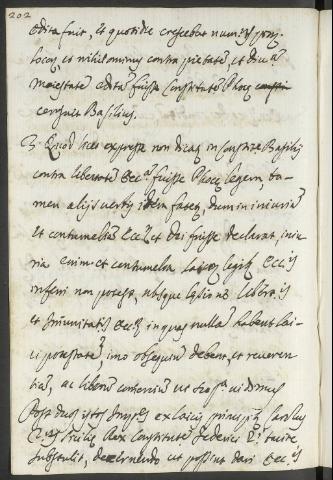 202
edita fuit, et quotidie crescebat numerus
locor, et nihilominus contra pietatem, et divinam
maiestatem editam fuisse Constitutionem Phocae
censuit Basilius.
3. Quod licet expresse non dicat in Constitutione Basilij
contra libertatem Eccl.am fuisse Phocae legem, ta-
men alijs verbis idem fatetur, dum in iniuriam
et contumeliam Eccl. et Dei fuisse declarat, iniu-
ria enim et contumelia legibus Eccl.ijs
inferri non potest, absque libert.
et Immunitatis Eccl. in quas nullam habent lai-
ci potestatem, imo obsequium debent, et reveren-
tiam, ac liberum ut
Post duos istos Imp.es ex laicis principibus Carolus
2.us Siciliae Rex Constitutionem Federici 2.i
substulit, decernendo ut possint dari Eccl.ijs